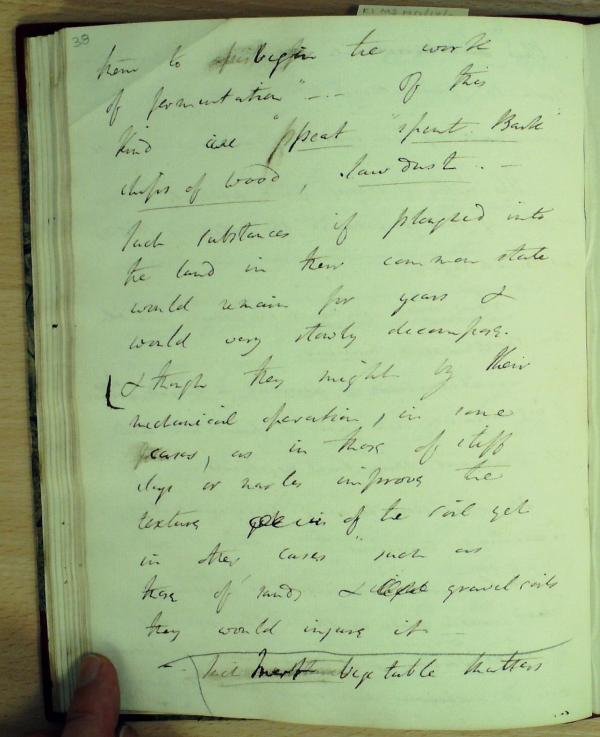 38
them to begin the work
of fermentation" -.- Of this
kind are "peat "spent Bark
chips of wood, saw dust. -
Such substances if ploughed into
the land in their common state
would remain for years &
would very slowly decompose.
& though they might by their
mechanical operation, in some
cases, as in those of stiff
clays or marles improve the
texture of the soil yet
in other cases such as
those of sands & gravel soils
they would injure it -
vegetable matters